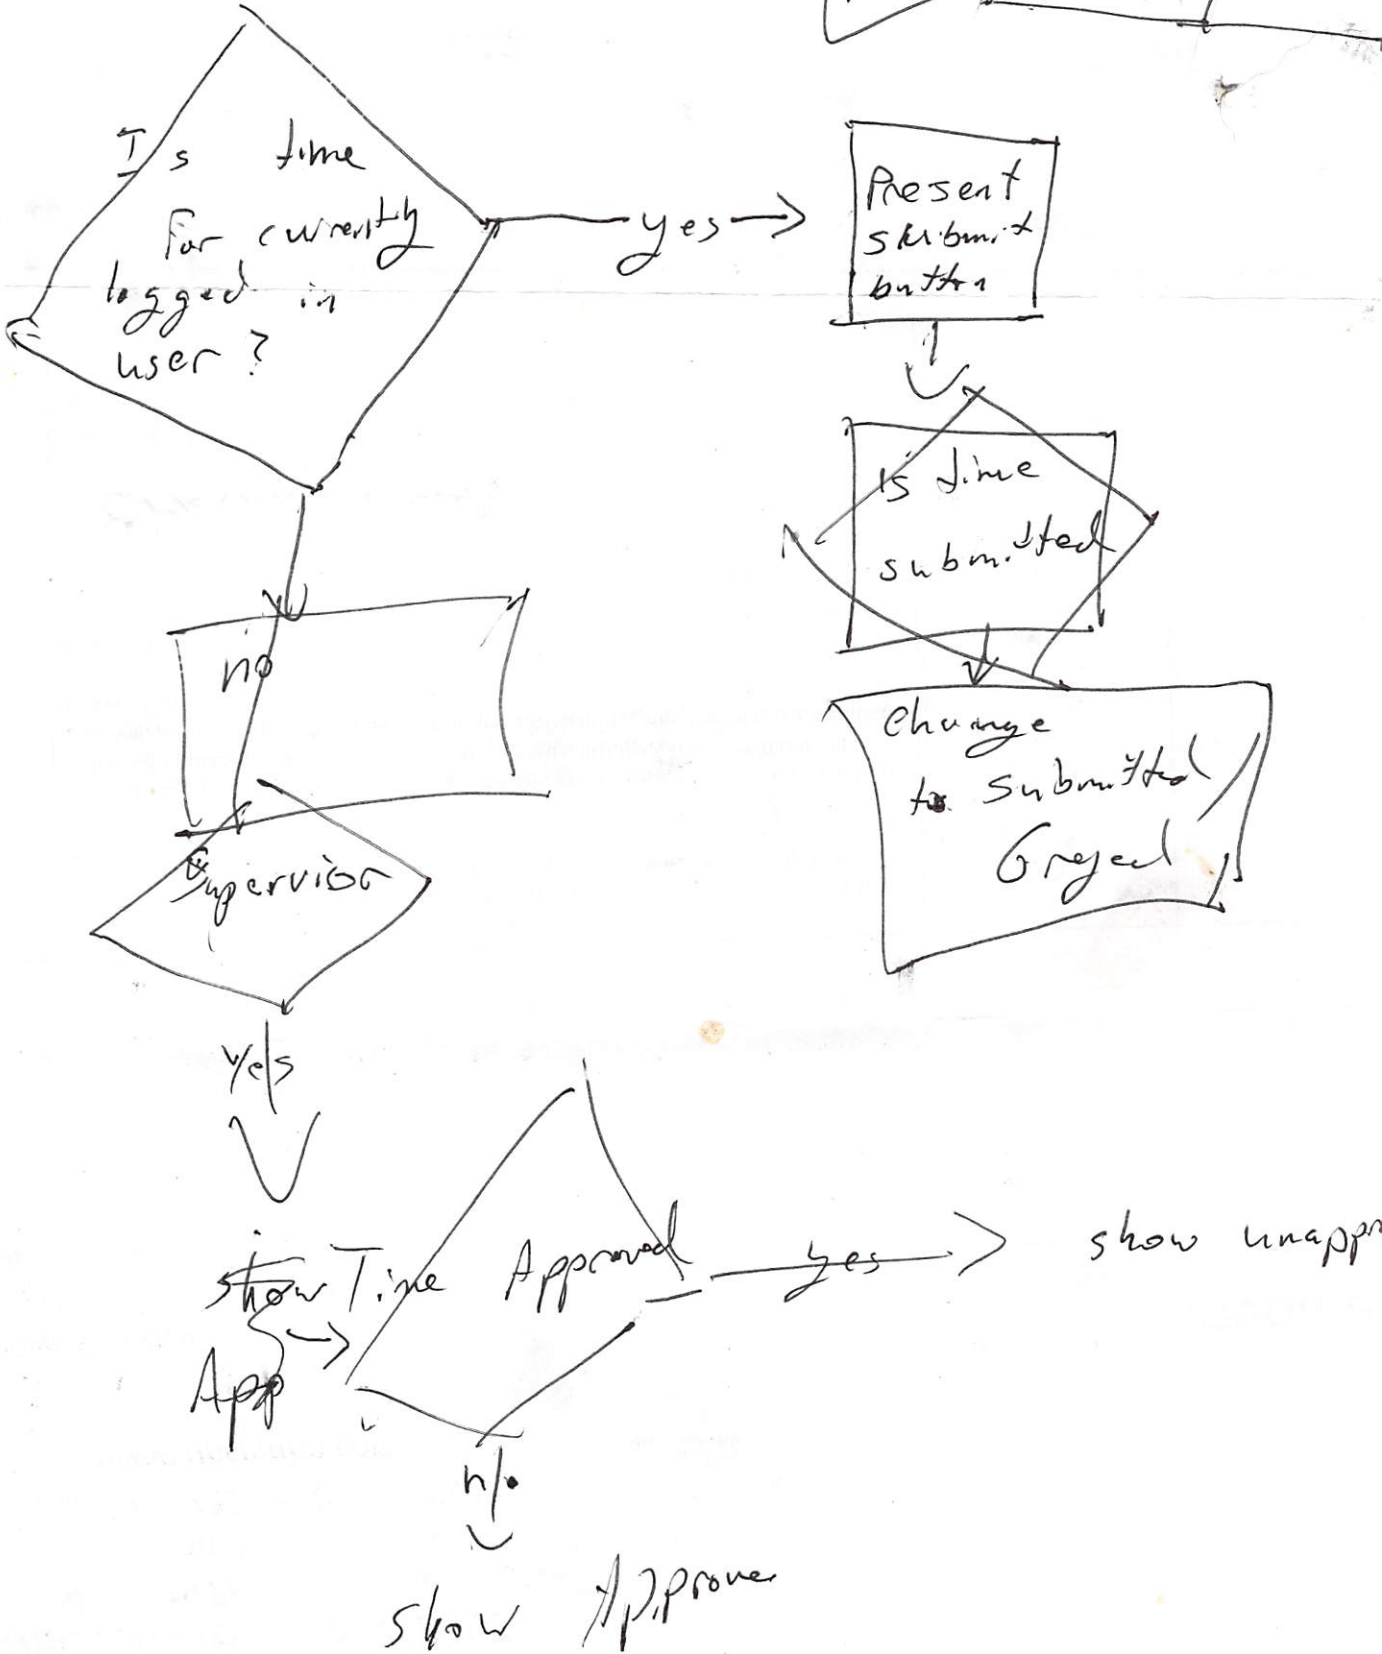 Is time
for currently
logged in
user?
yes
Present
submit
button
is time
submitted
Change
to submitted
Greyed
no
Supervior
yes
show Time
App
Approved
yes
show unappr
no
show Approve